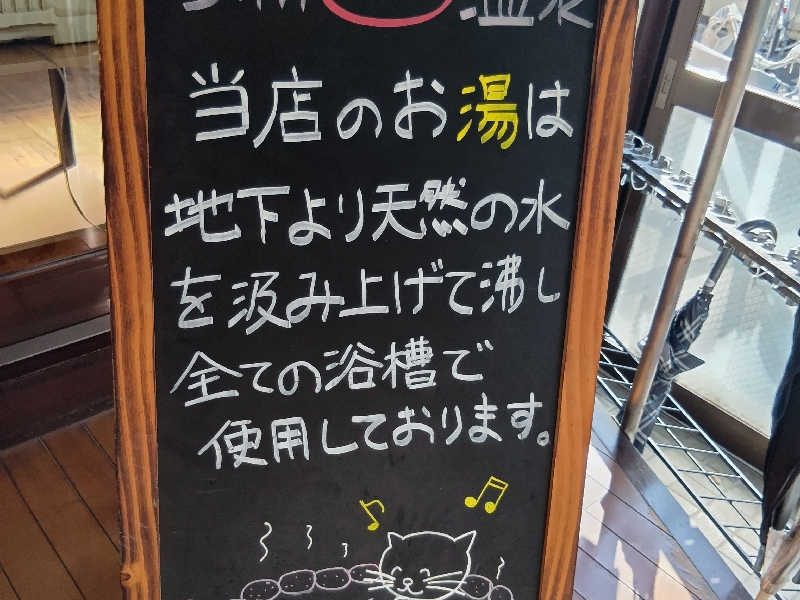 温泉
当店のお湯は
地下より天然の水
を汲み上げて沸し
全ての浴槽で
使用しております。